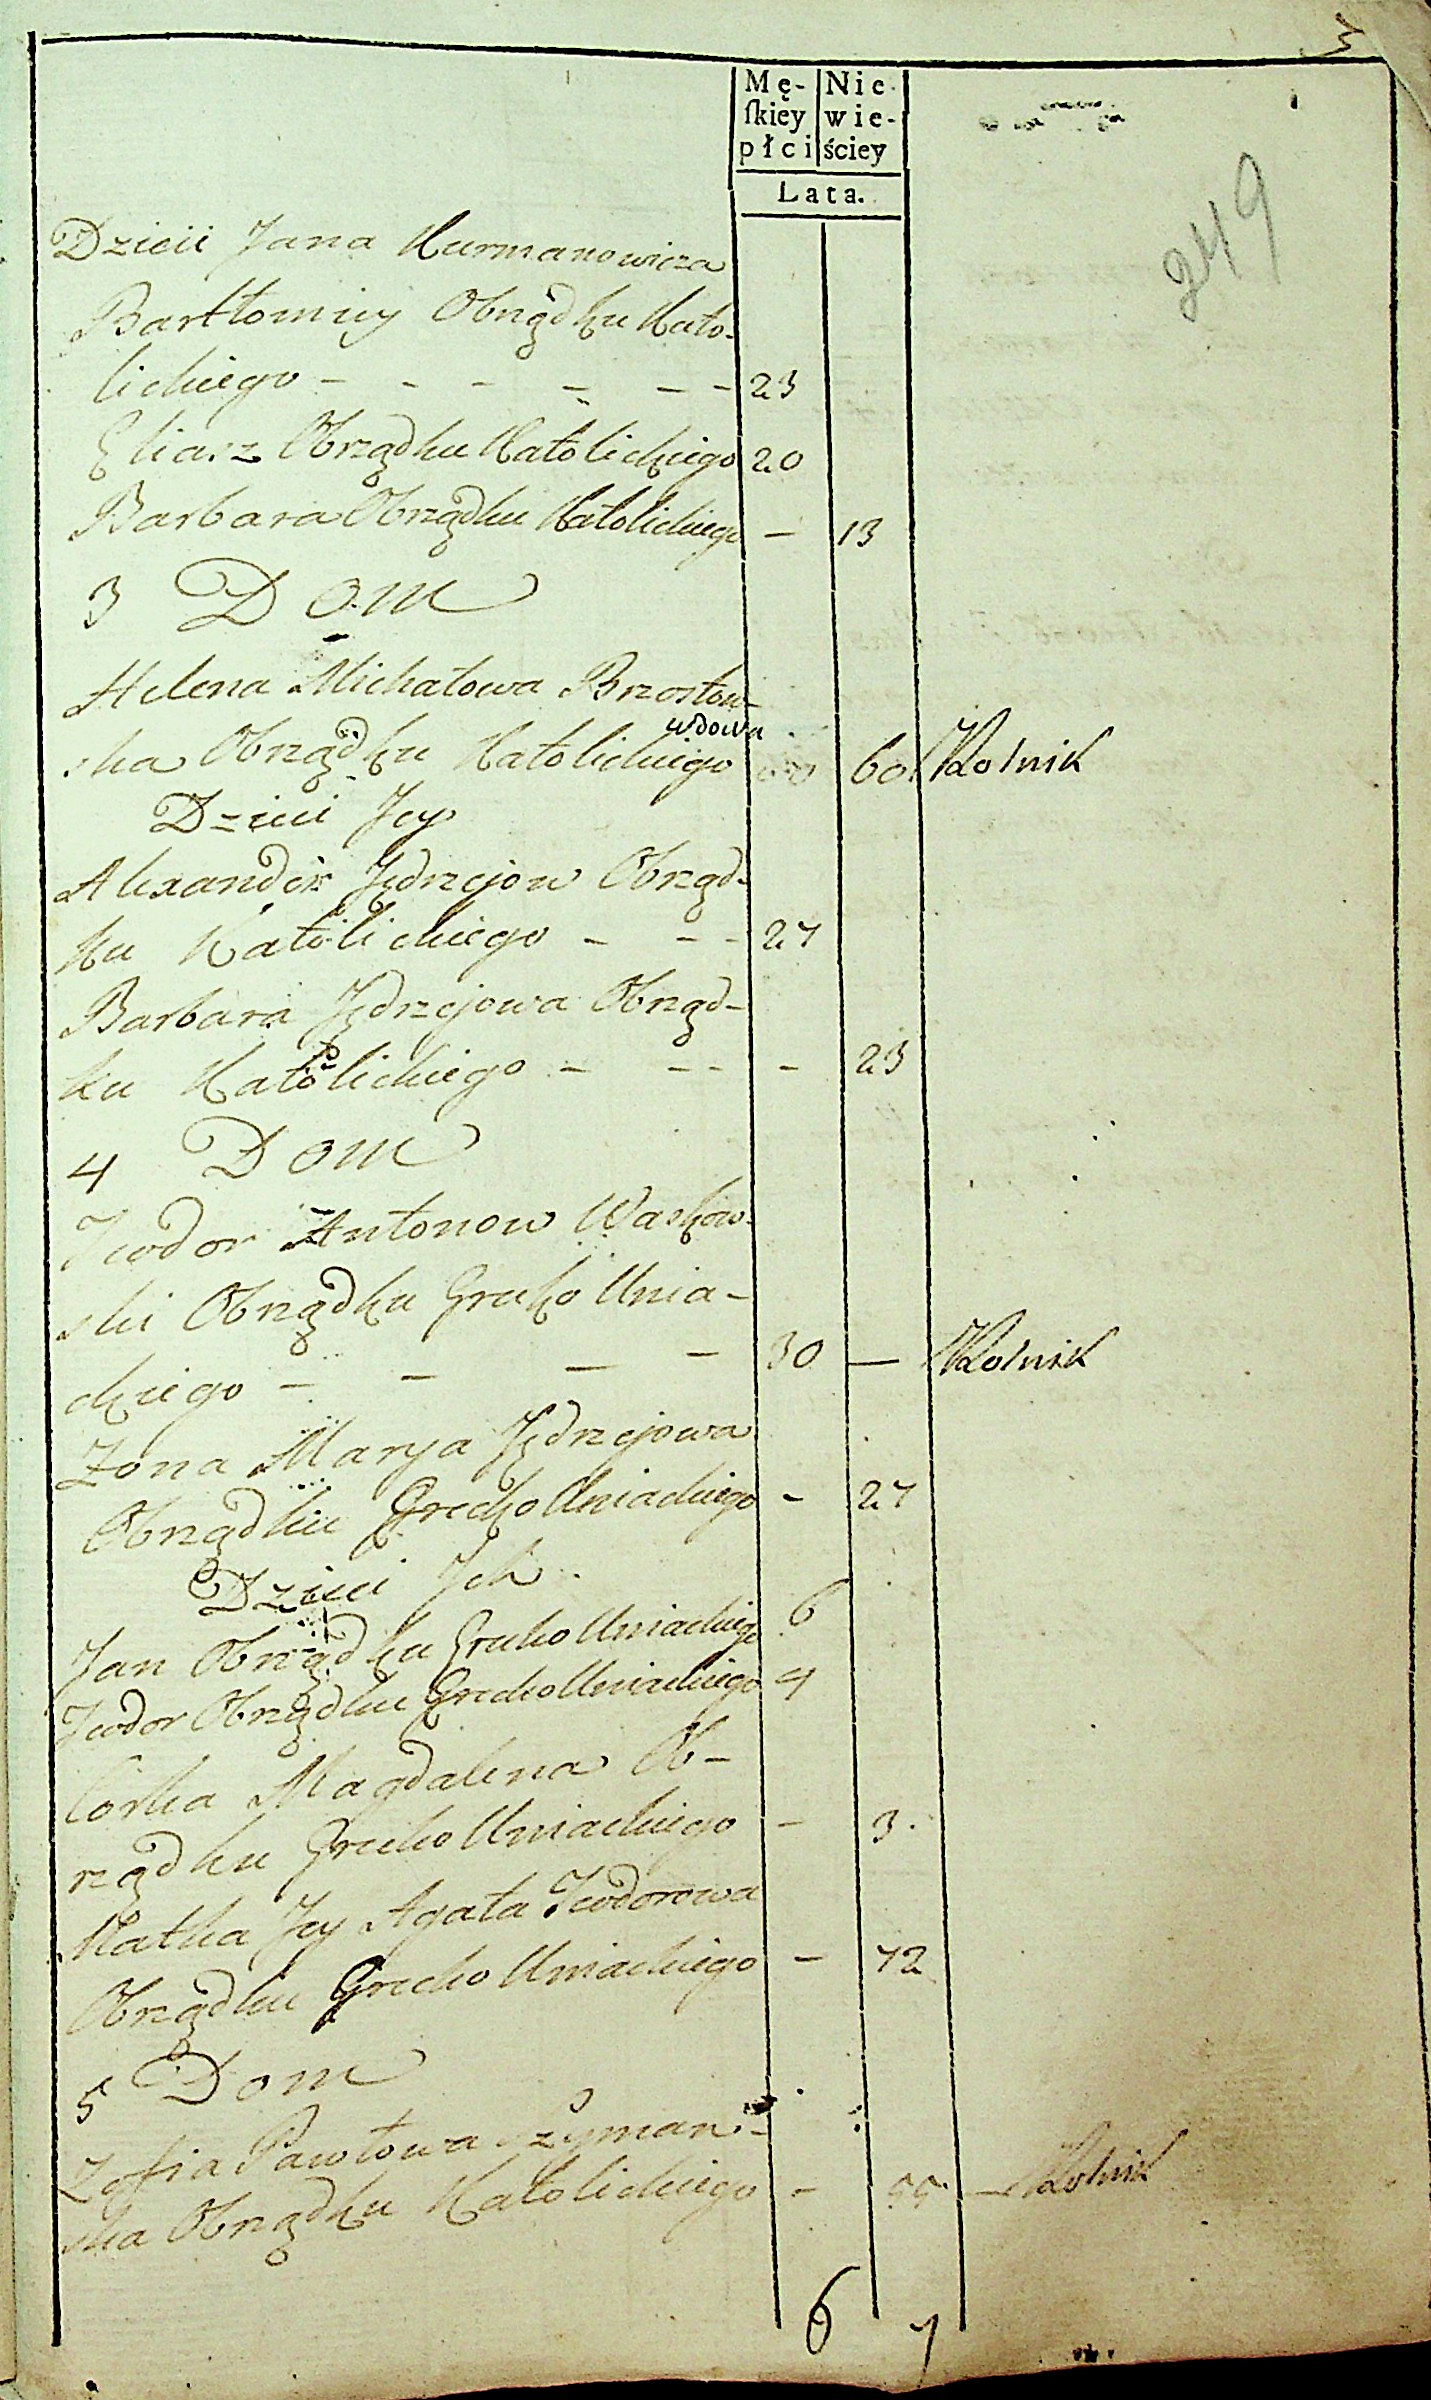 3
Mę- Nie
ſkiey wie-
płci ściey
Lata.
249
Dzieii Jana Kurmanowicza
Bartłomiey Obrządku Kato-
lickiego - - - - - - 23
Eliasz Obrządku Katolickiego 20
Barbara Obrządku Katolickiego - 13
3 Dom
Helena Michałowa Brzostow-
wdowa
ska Obrządku Katolickiego 60 Rolnik
Dzieci Jey
Alexander Jędrzejow Obrząd-
ku Katolickiego - - - 27
Barbara Jędrzejowa Obrząd-
ku Katolickiego - - - - 23
4 Dom
Teodor Antonow Waskow-
ski Obrządku Grecko Unia-
ckiego - - - - 30 — Rolnik
Zona Marya Jędrzejowa
Obrządku Grecko Uniackiego - 27
Dzieci Ich
Jan Obrządku Grecko Uniackiego 6
Teodor Obrządku Grecko Uniackiego 4
Corka Magdalena Ob-
rządku Grecko Uniackiego - 3.
Matka Jey Agata Teodorowa
Obrządku Grecko Uniackiego - 72
5 Dom
Zofia Pawłowa Szyman-
ska Obrządku Katolickiego - 55 — Rolnik
6 7